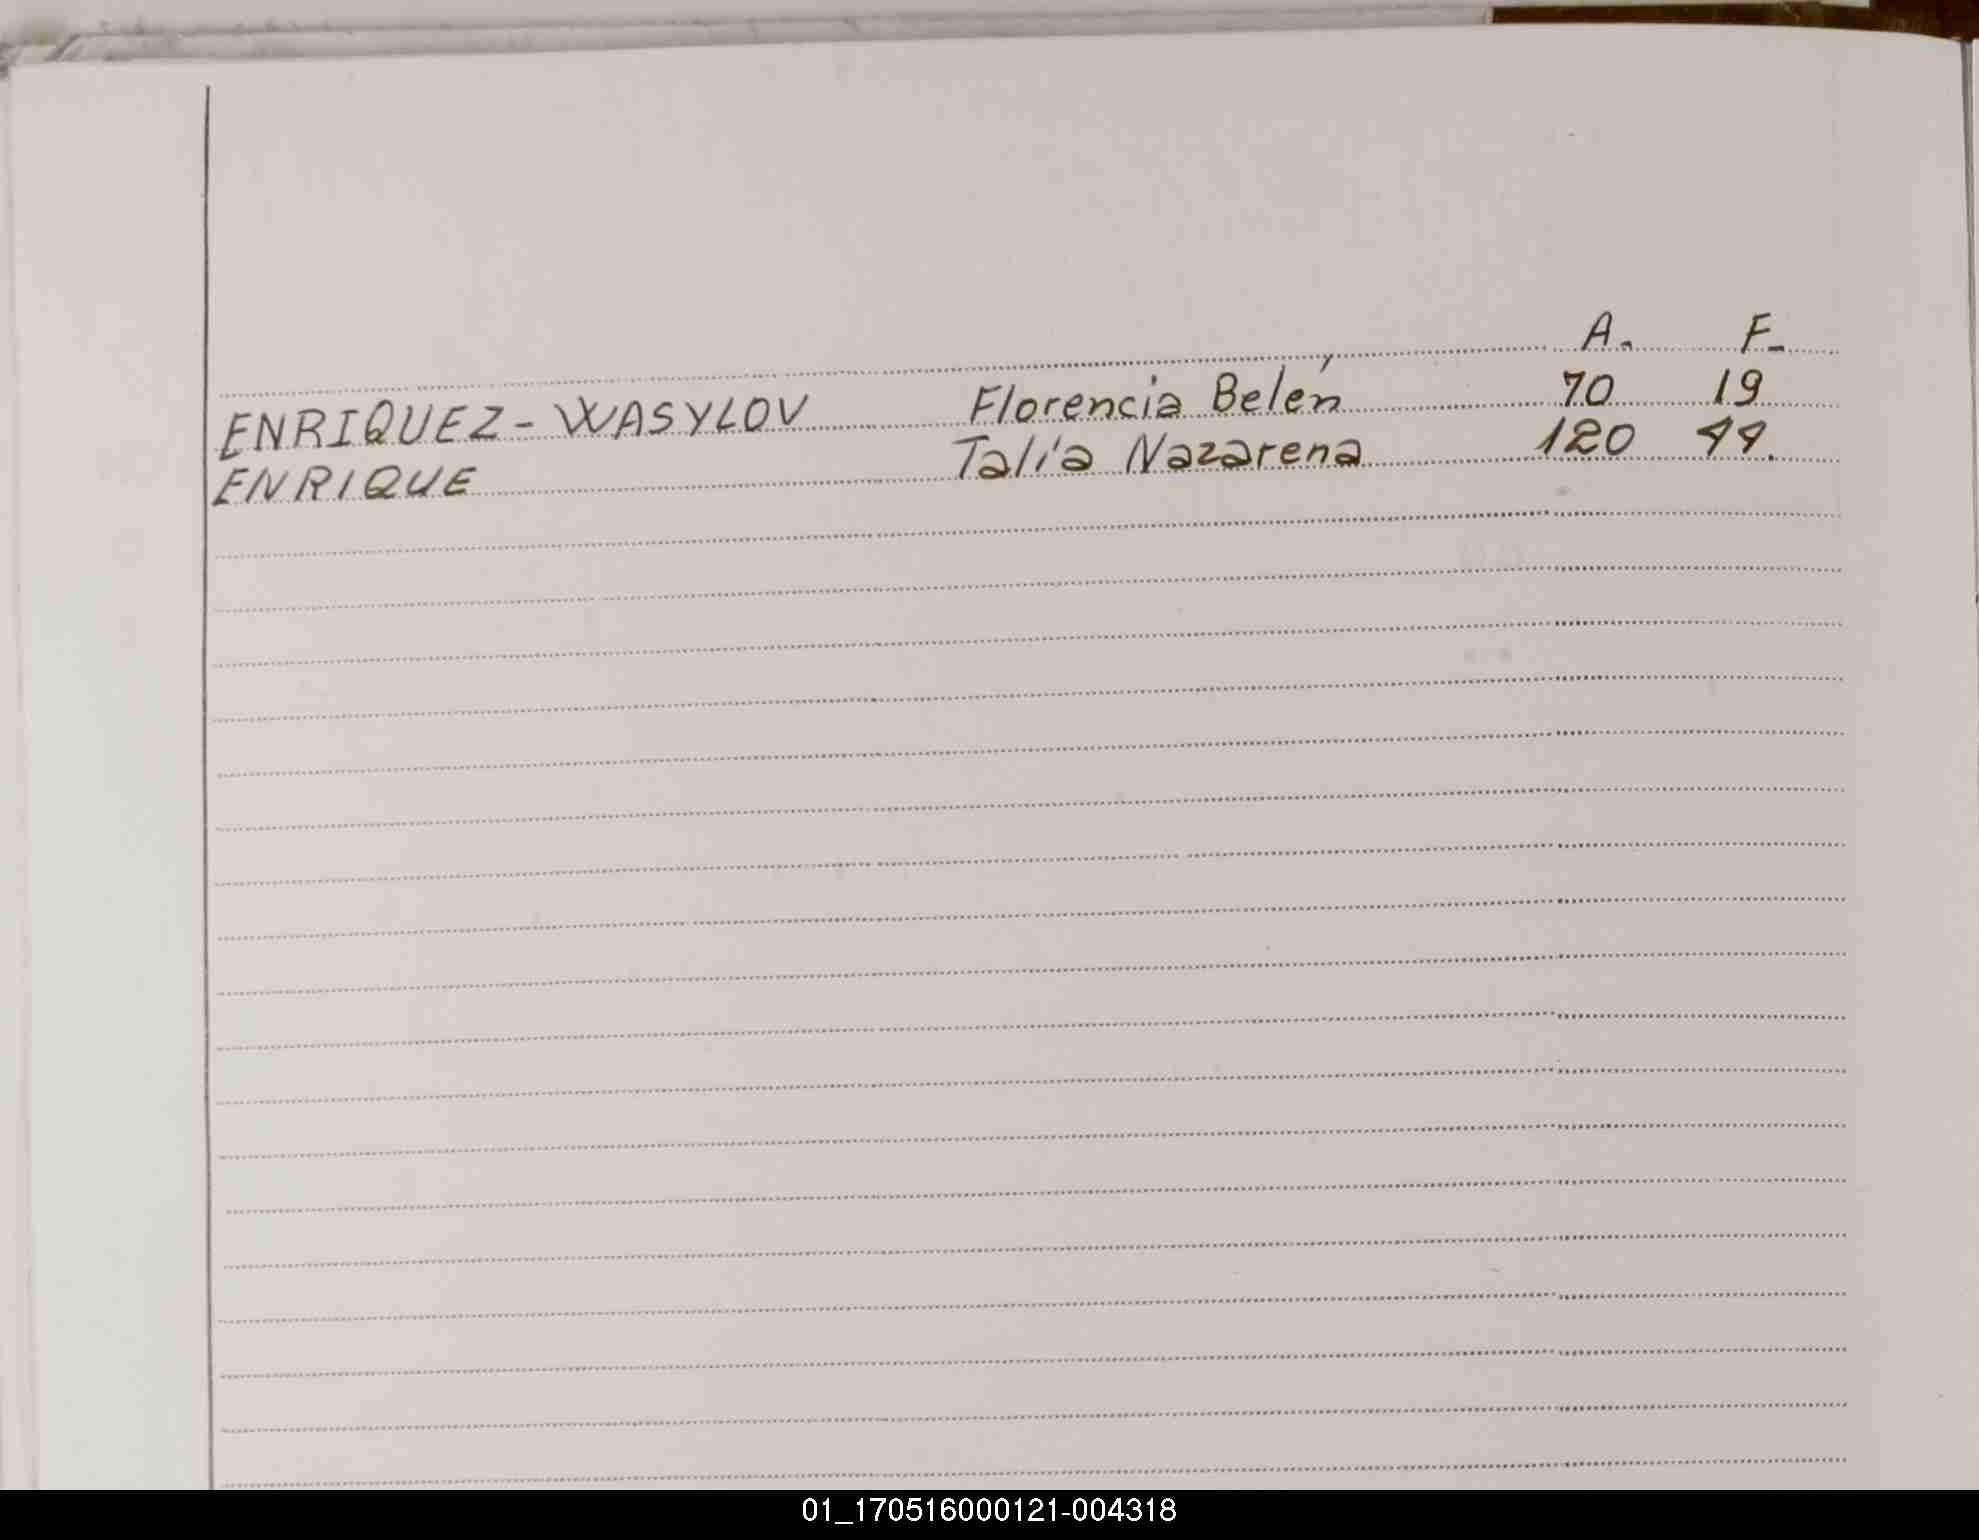 A. F-
ENRIQUEZ - WASYLOV Florencia Belén 70 19
ENRIQUE Talía Nazarena 120 44.
01_170516000121-004318